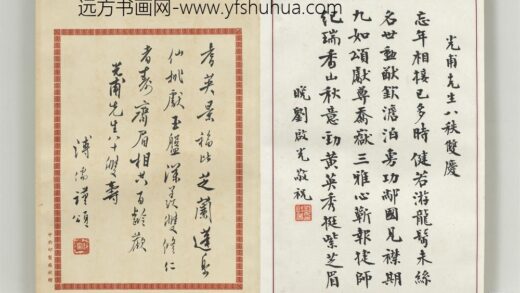 远方书画网- www.yfshuhua.com
光甫先生八秩雙慶
忘年相接已多時健若游龍鬢未絲
名世勳猷欽澹泊功鄰國見襟期
九如頌獻尊嶽三雅心蘄報捷師
紀瑞香山秋意勁黃英秀挺紫芝眉
晚劉啟光敬祝
耆英景福比芝蘭蓬島
仙桃獻玉盤深羨雙修仁
者壽齊眉相共百齡歡
光甫先生八十雙壽
謹頌